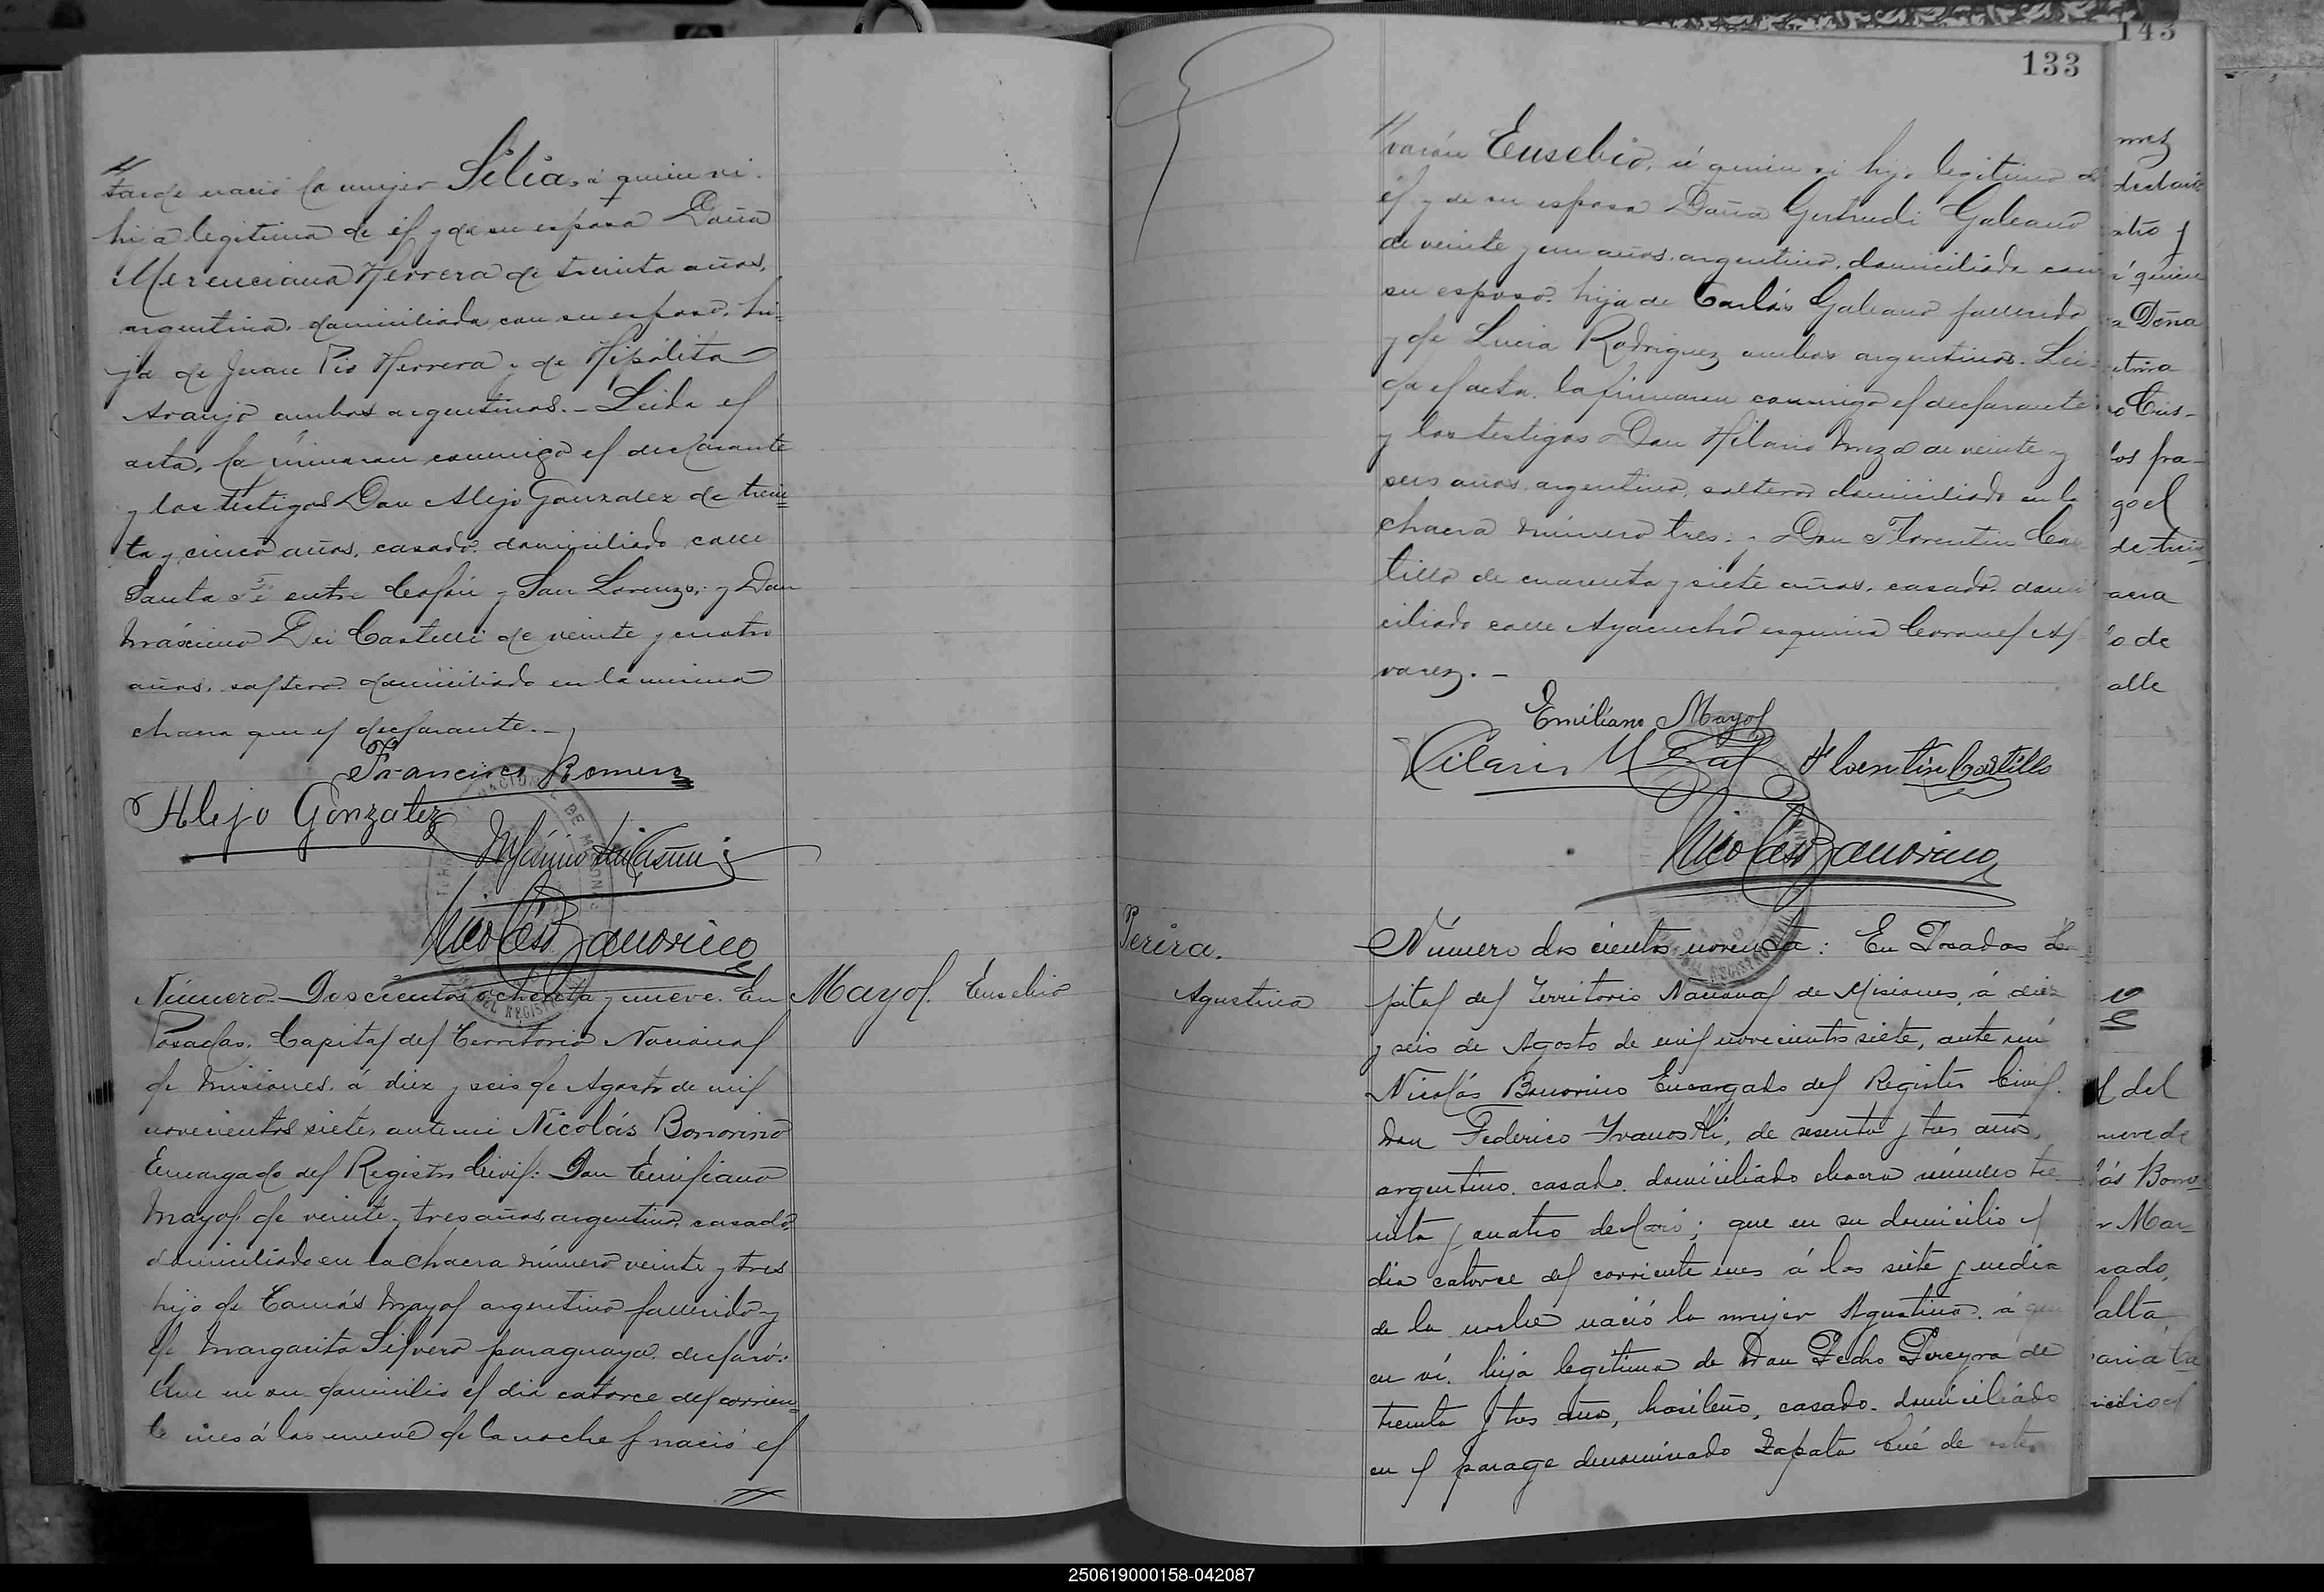 tarde nació la mujer Silia, á quien ví.
hija legitima de él y de su esposa Doña
Merenciana Herrera de treinta años,
argentina, domiciliada con su esposo, hi=
ja de Juan Pio Herrera y de Hipólita
Araujo ambos argentinos.- Leida el
acta, la firmaron conmigo el declarante
y los testigos Don Alejo Gonzalez de trein=
ta y cinco años, casado, domiciliado calle
Santa Fé entre Colón y San Lorenzo; y Don
Máximo Dei Castelli de veinte y cuatro
años, soltero, domiciliado en la misma
chacra que el declarante.-
Francisco Romero
Alejo Gonzalez
Nicolás Bonorino
Número Doscientos ochenta y nueve. En
Posadas, Capital del Territorio Nacional
de Misiones, á diez y seis de Agosto de mil
novecientos siete, ante mi Nicolás Bonorino
Encargado del Registro Civil: Don Emiliano
Mayol, de veinte y tres años, argentino, casado,
domiciliado en la chacra número veinte y tres
hijo de Tomás Mayol argentino fallecido y
de Margarita Silvero paraguaya, declaró:
Que en su domicilio el dia catorce del corrien=
te mes á las nueve de la noche nació el
Mayol. Eusebio
133
varón Eusebio, á quien ví hijo legitimo de
él y de su esposa Doña Gertrudi Galeano
de veinte y un años, argentina, domiciliada con
su esposo, hija de Carlos Galeano fallecido
y de Lucia Rodriguez ambos argentinos. Lei-
da el acta, la firmaron conmigo el declarante
y los testigos Don Hilario Meza de veinte y
seis años, argentino, soltero, domiciliado en la
chacra número tres; y Don Florentin Cas
tillo de cuarenta y siete años, casado, domi
ciliado calle Ayacucho esquina Coronel Al
varez.-
Emiliano Mayol
Hilario Meza Florentin Castillo
Nicolás Bonorino
Pereira.
Agustina
Número dos cientos noventa: En Posadas Ca
pital del Territorio Nacional de Misiones, á diez
y seis de Agosto de mil novecientos siete, ante mí
Nicolás Bonorino Encargado del Registro Civil.
Don Federico Ivanoski, de sesenta y tres años,
argentino, casado, domiciliado chacra número tre
inta y cuatro declaró; que en su domicilio el
dia catorce del corriente mes á las siete y media
de la noche nació la mujer Agustina, á qui
en ví, hija legítima de Don Pedro Pereyra de
treinta y tres años, brasileño, casado, domiciliado
en el parage denominado Zapata Cué de este
143
mez
declaró
á quien
Doña
los fra-
go el
de trein
acra
o de
alle
l del
nueve de
lás Bono
Mar
sado,
alta
250619000158-042087